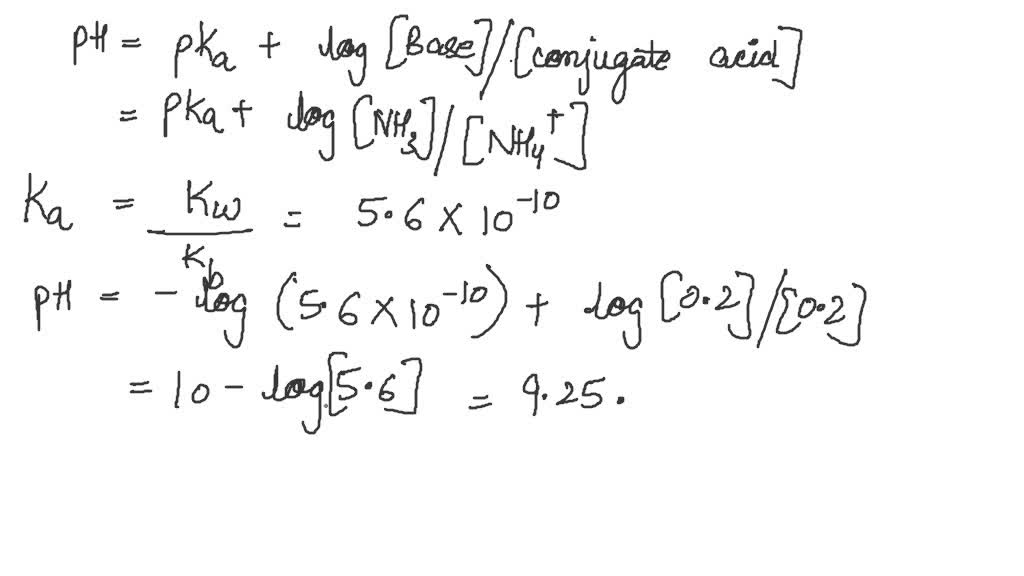 pH = pKa + log [Base]/[conjugate acid]
= pKa + log [NH₃]/[NH₄⁺]
Ka = Kw/Kb = 5.6 × 10⁻¹⁰
pH = - log (5.6 × 10⁻¹⁰) + log [0.2]/[0.2]
= 10 - log [5.6] = 9.25.